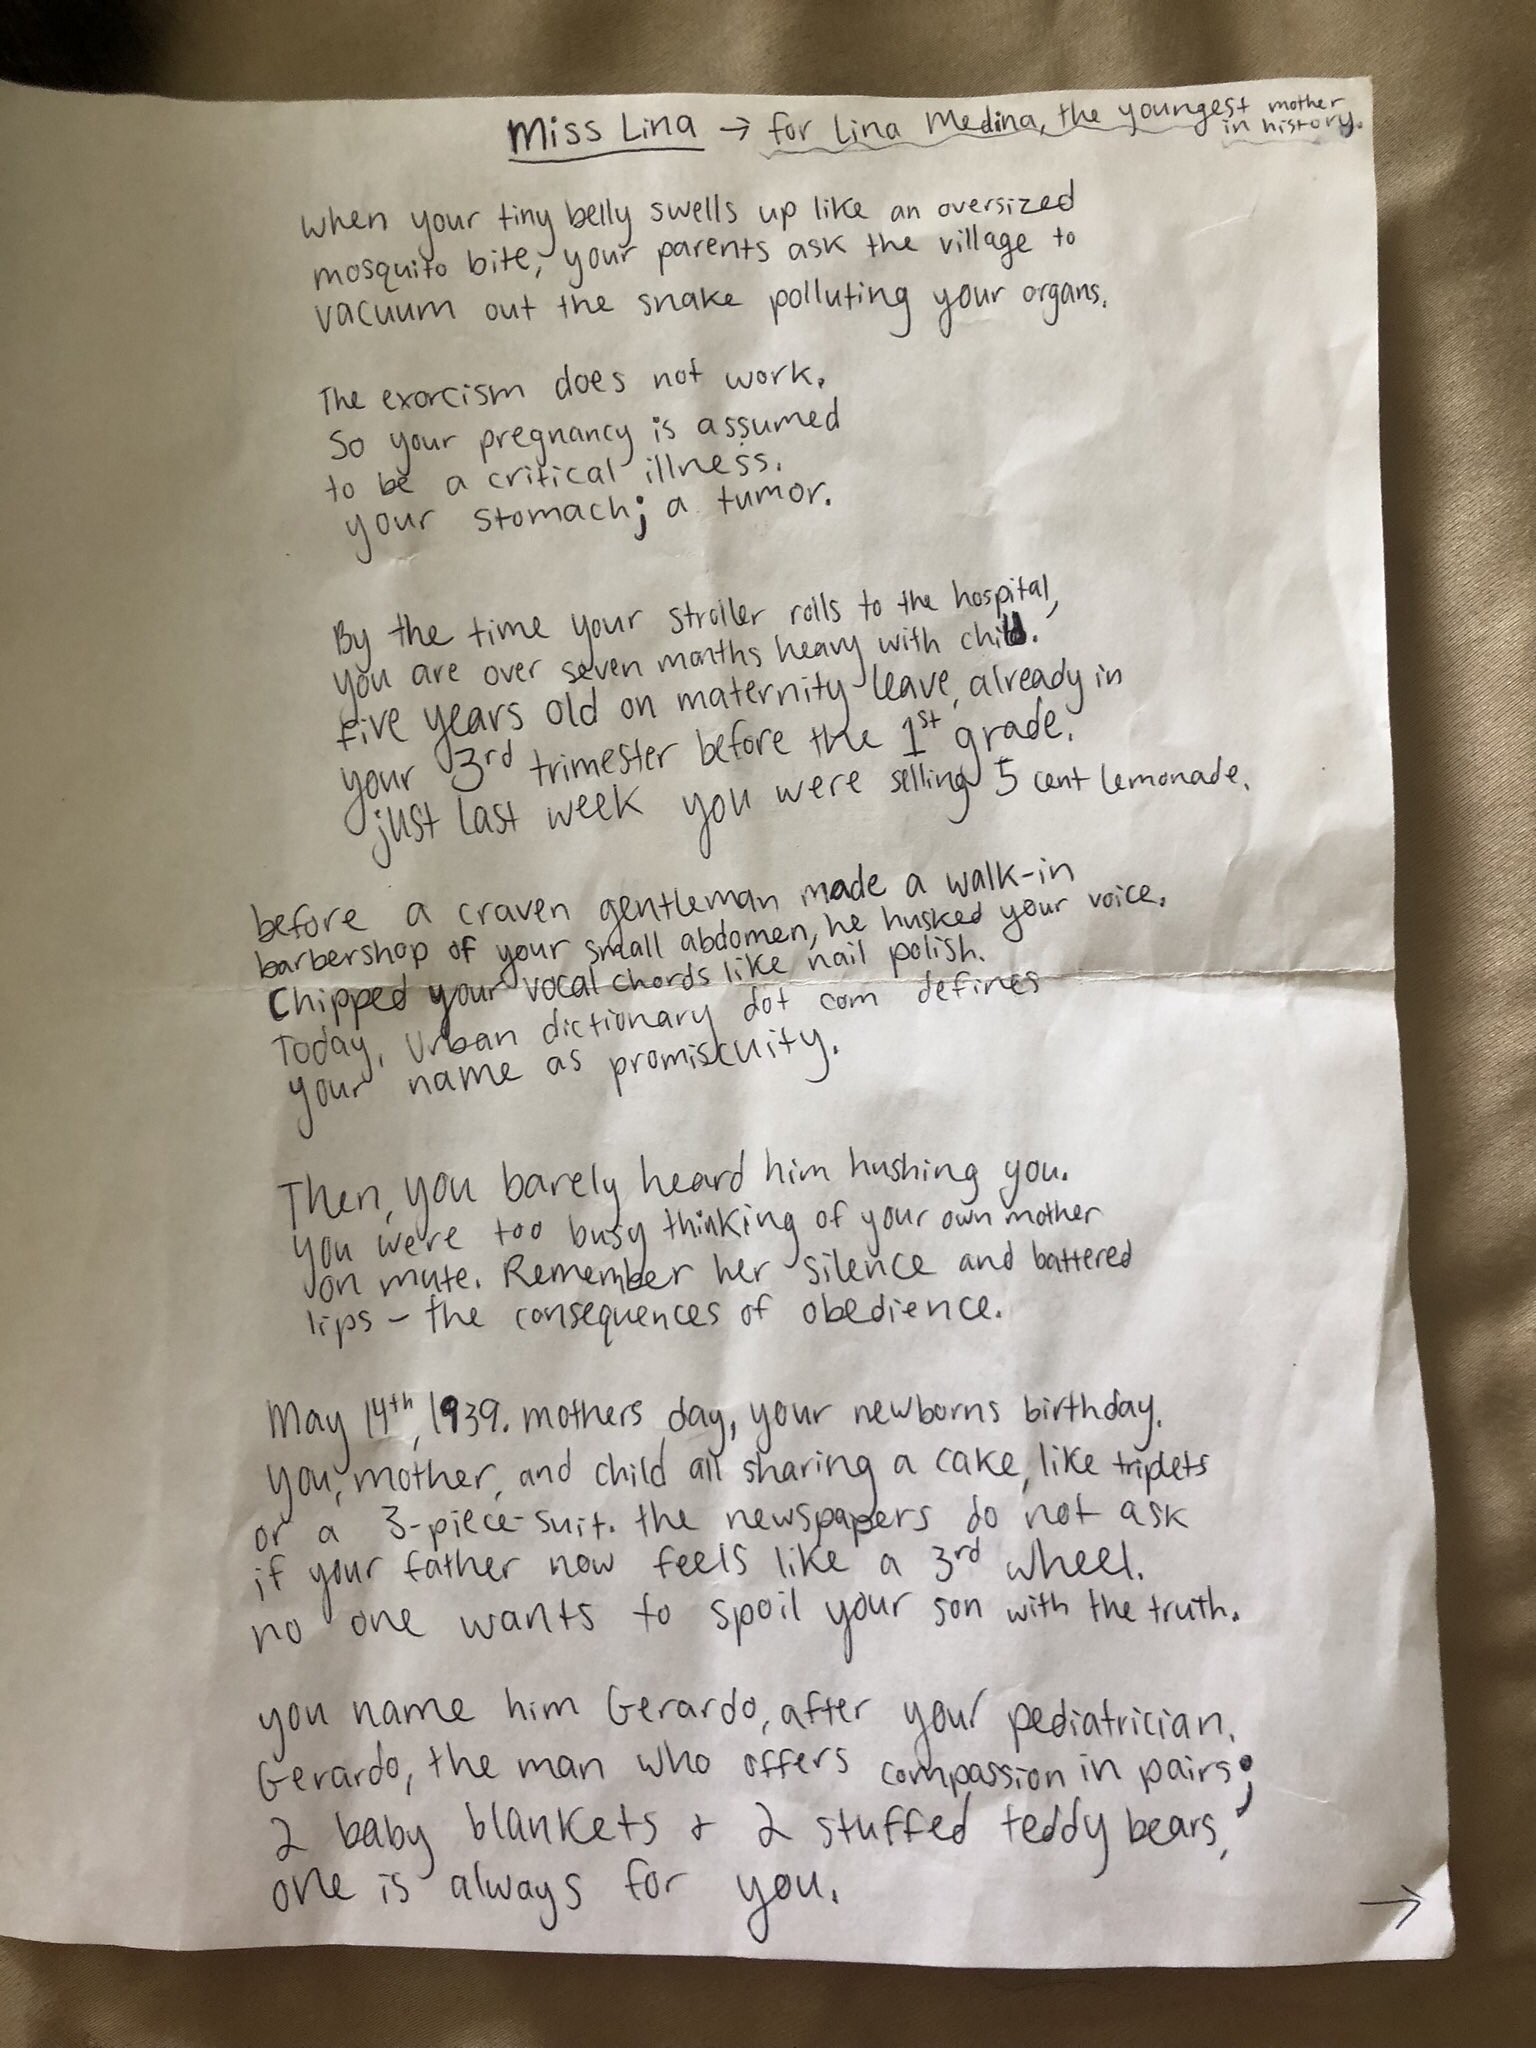 Miss Lina → for Lina Medina, the youngest mother in history.
when your tiny belly swells up like an oversized
mosquito bite, your parents ask the village to
vacuum out the snake polluting your organs.
The exorcism does not work.
So your pregnancy is assumed
to be a critical illness.
your stomach; a tumor.
By the time your stroller rolls to the hospital,
you are over seven months heavy with child.
five years old on maternity leave, already in
your 3rd trimester before the 1st grade.
just last week you were selling 5 cent lemonade.
before a craven gentleman made a walk-in
barbershop of your small abdomen, he husked your voice.
Chipped your vocal chords like nail polish.
Today, Urban dictionary dot com defines
your name as promiscuity.
Then, you barely heard him hushing you.
you were too busy thinking of your own mother
on mute. Remember her silence and battered
lips - the consequences of obedience.
May 14th, 1939. mothers day, your newborns birthday.
you, mother, and child all sharing a cake, like triplets
or a 3-piece-suit. the newspapers do not ask
if your father now feels like a 3rd wheel.
no one wants to spoil your son with the truth.
you name him Gerardo, after your pediatrician.
Gerardo, the man who offers compassion in pairs;
2 baby blankets & 2 stuffed teddy bears,
one is always for you.
→